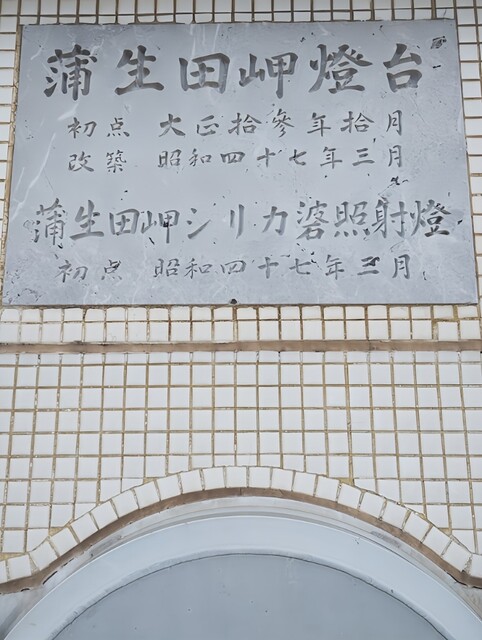 蒲生田岬燈台
初点 大正拾参年拾月
改築 昭和四十七年三月
蒲生田岬シリカ碆照射燈
初点 昭和四十七年三月